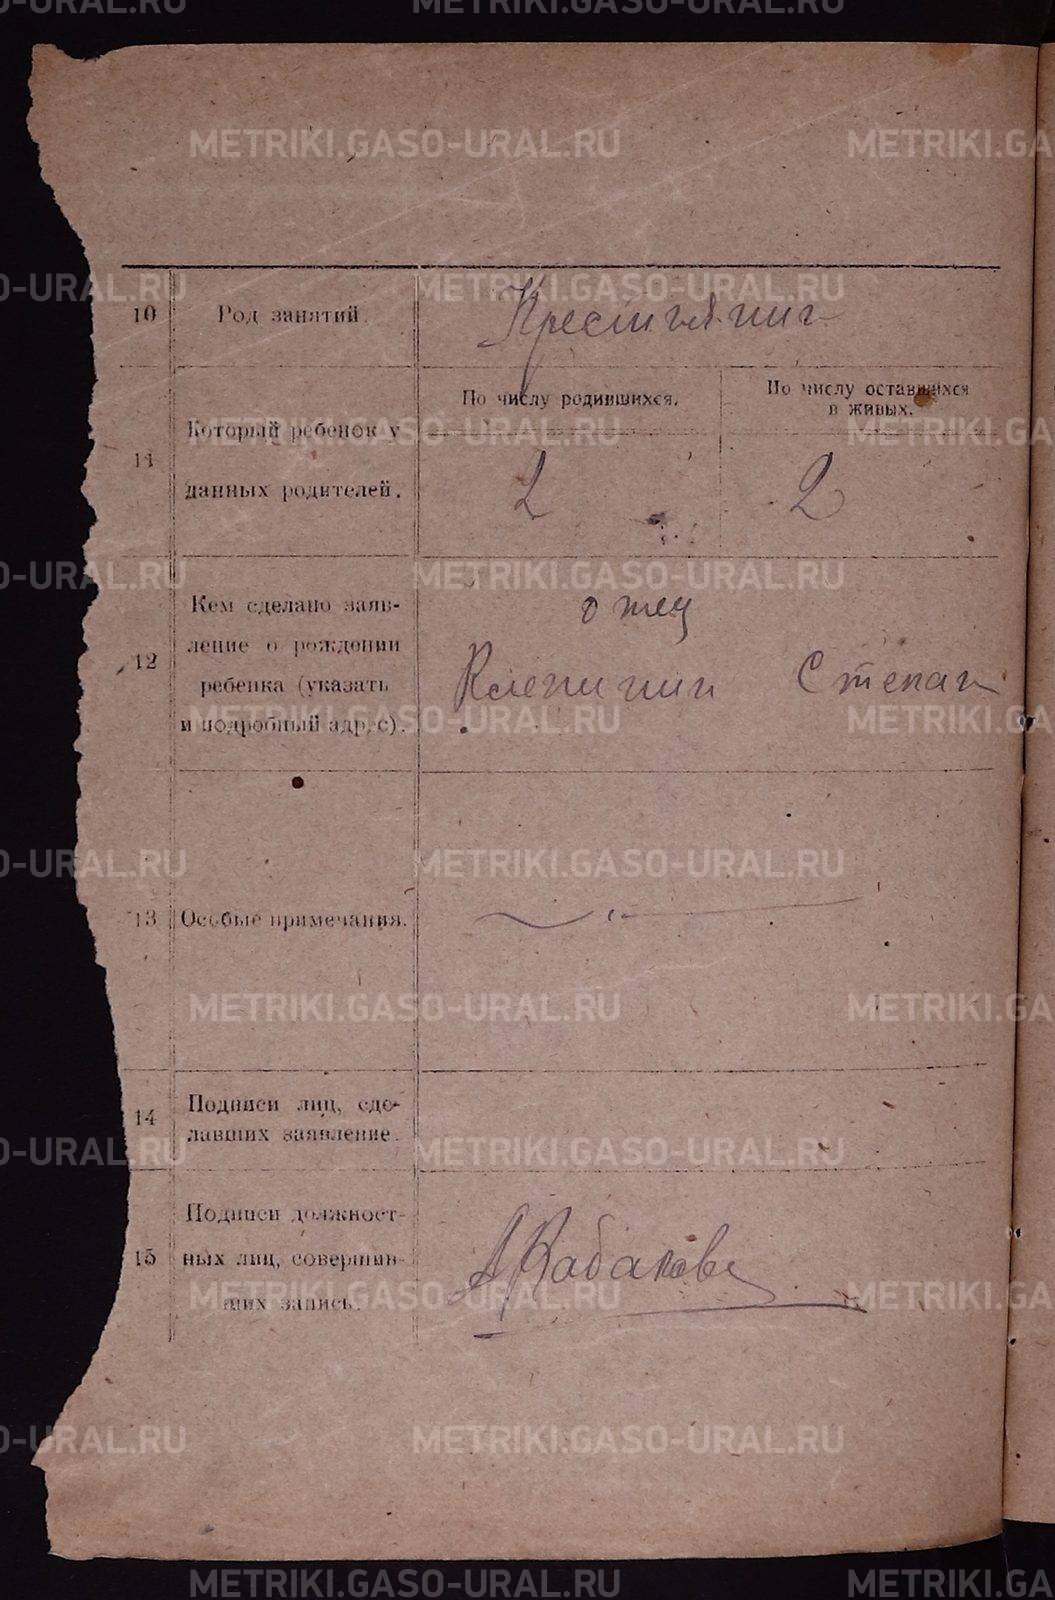 METRIKI.GASO-URAL.RU
10 Род занятий. Крестиянин
11 Который ребенок у данных родителей.
По числу родившихся. 2
По числу оставшихся
в живых. 2
12 Кем сделано заяв-
ление о рождении
ребенка (указать
и подробный адрес).
отец
Клепинин Степан
13 Особые примечания.
14 Подписи лиц, сде-
лавших заявление.
15 Подписи должност-
ных лиц, совершив-
ших запись.
А Кабаков